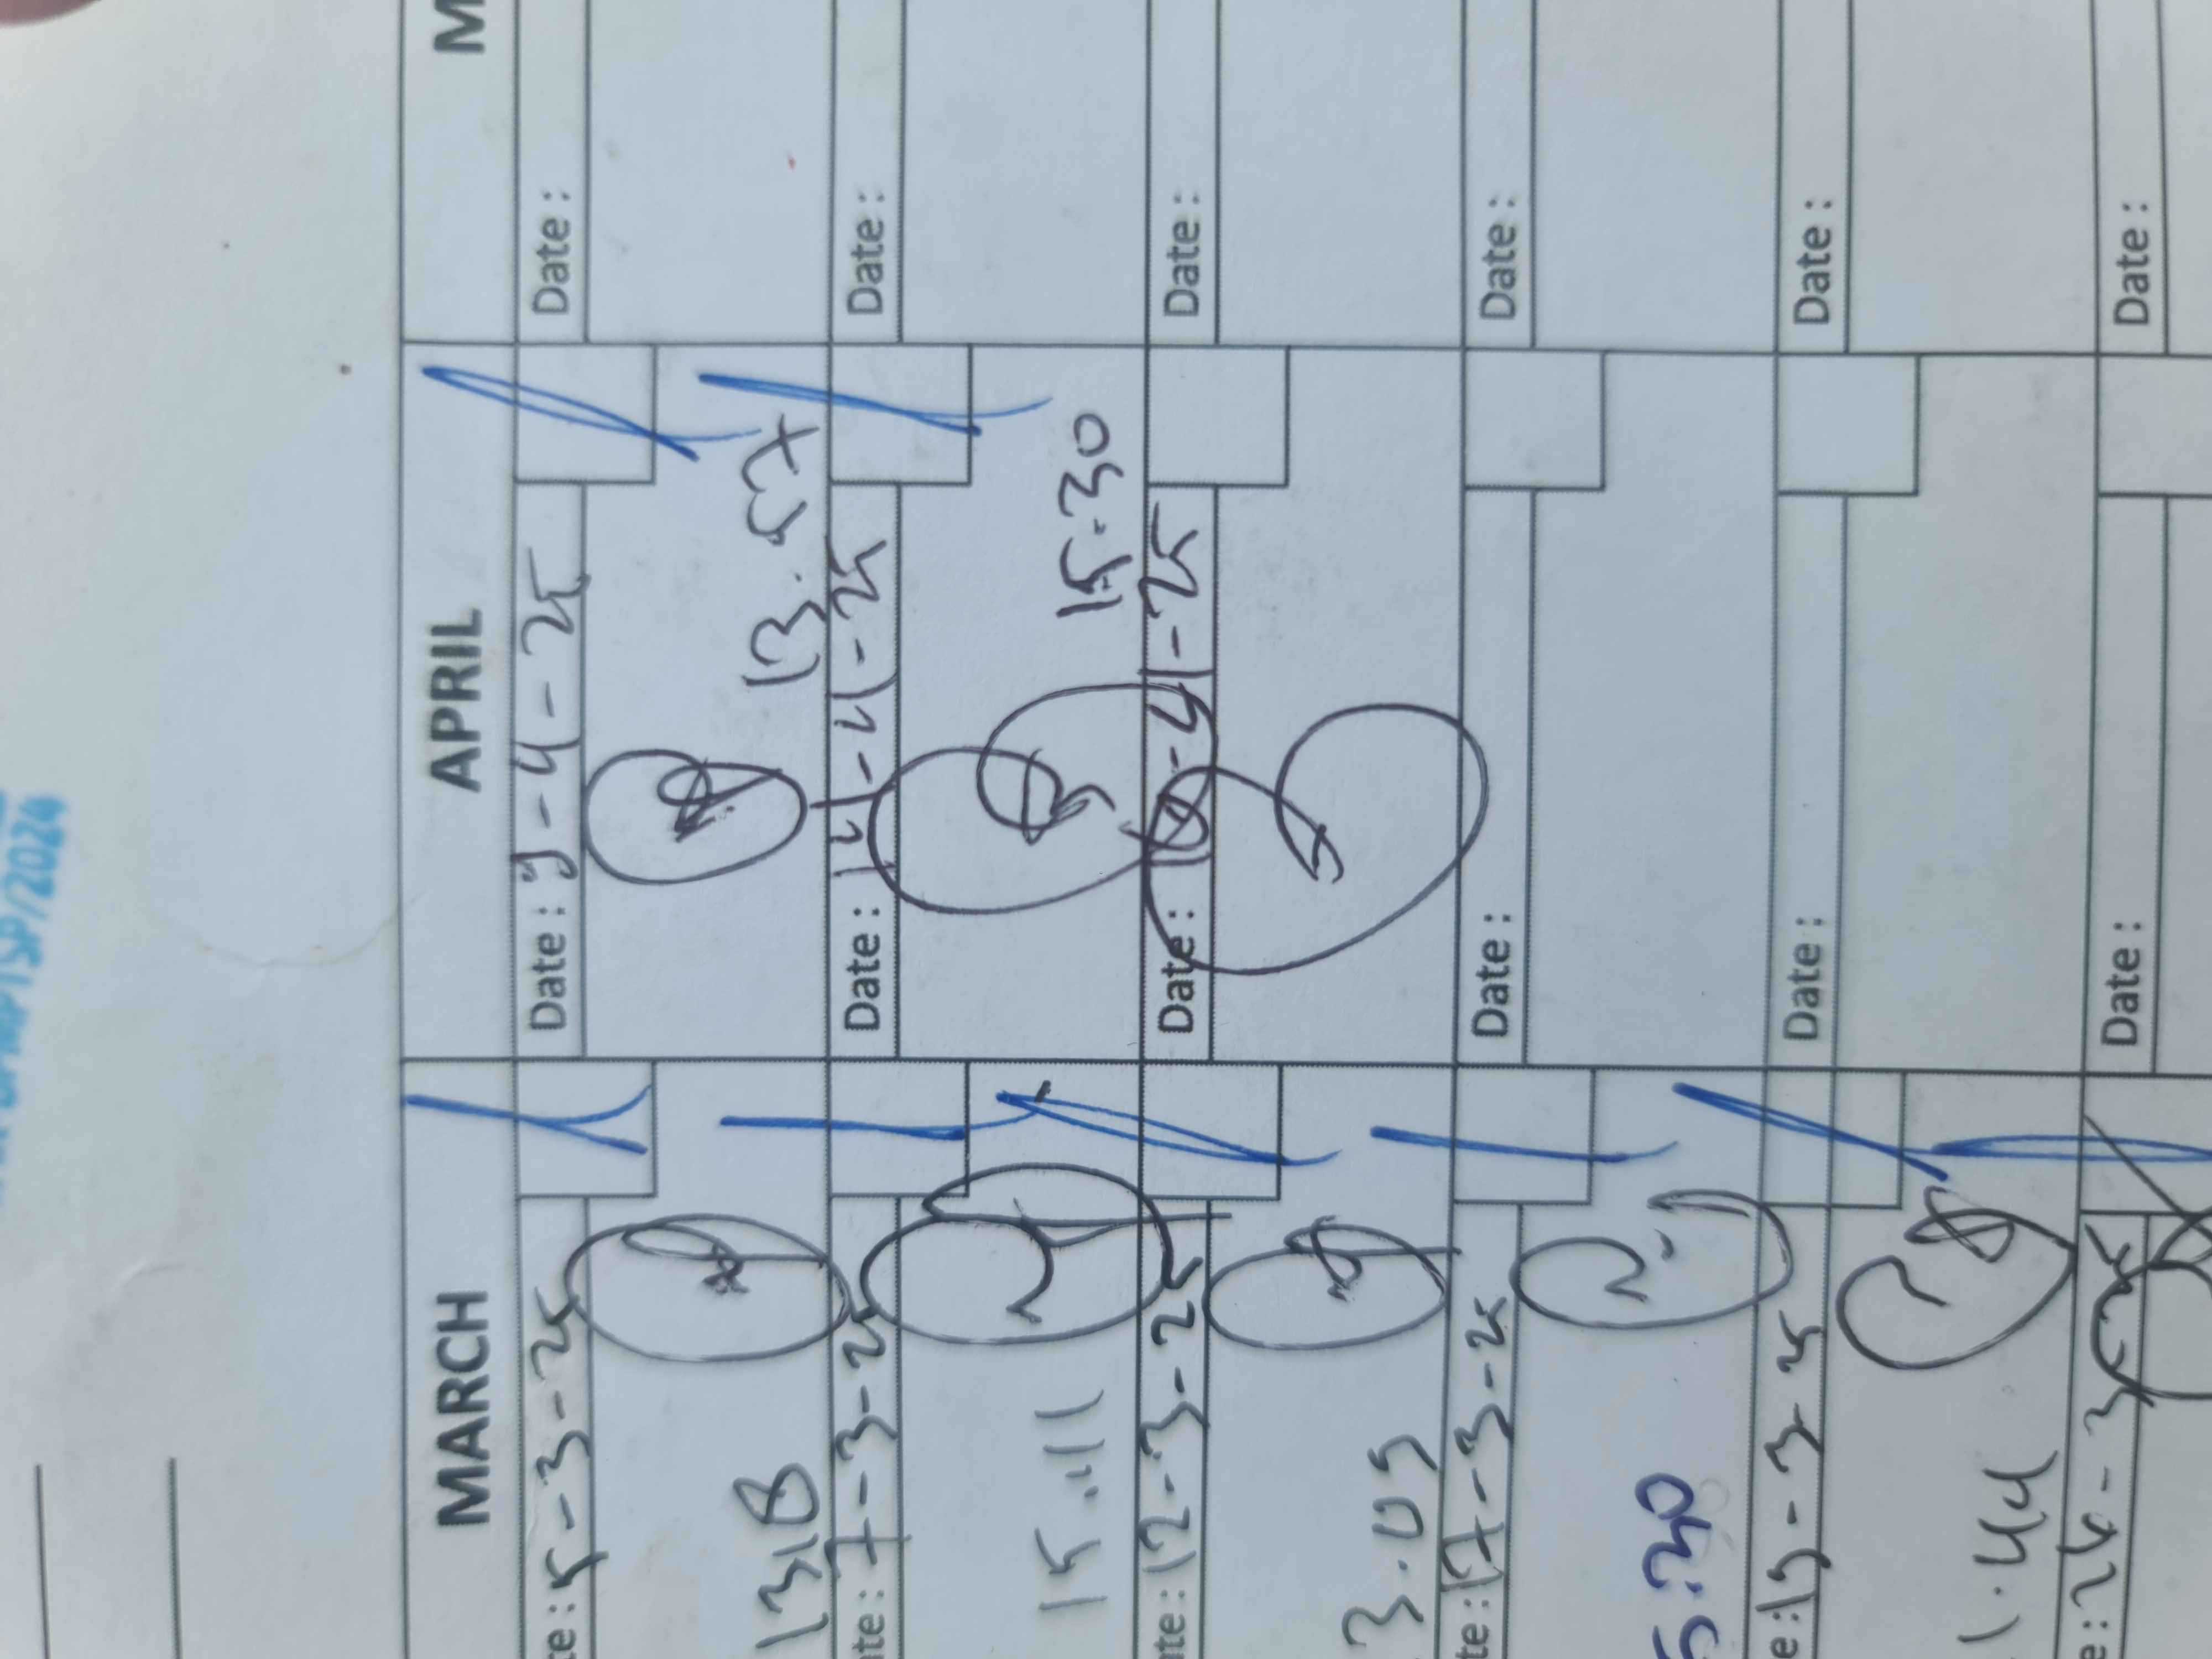 /2024
MARCH
APRIL
M
te : 5-3-25
Date : 9-4-25
Date :
1318
13.57
ate : 7-3-25
Date : 14-4-25
Date :
15.11
15.30
te : 12-3-25
Date : -25
Date :
3.05
te : 17-3-25
Date :
Date :
5:30
e : 19-3-25
Date :
Date :
1.44
e : 26-3-25
Date :
Date :